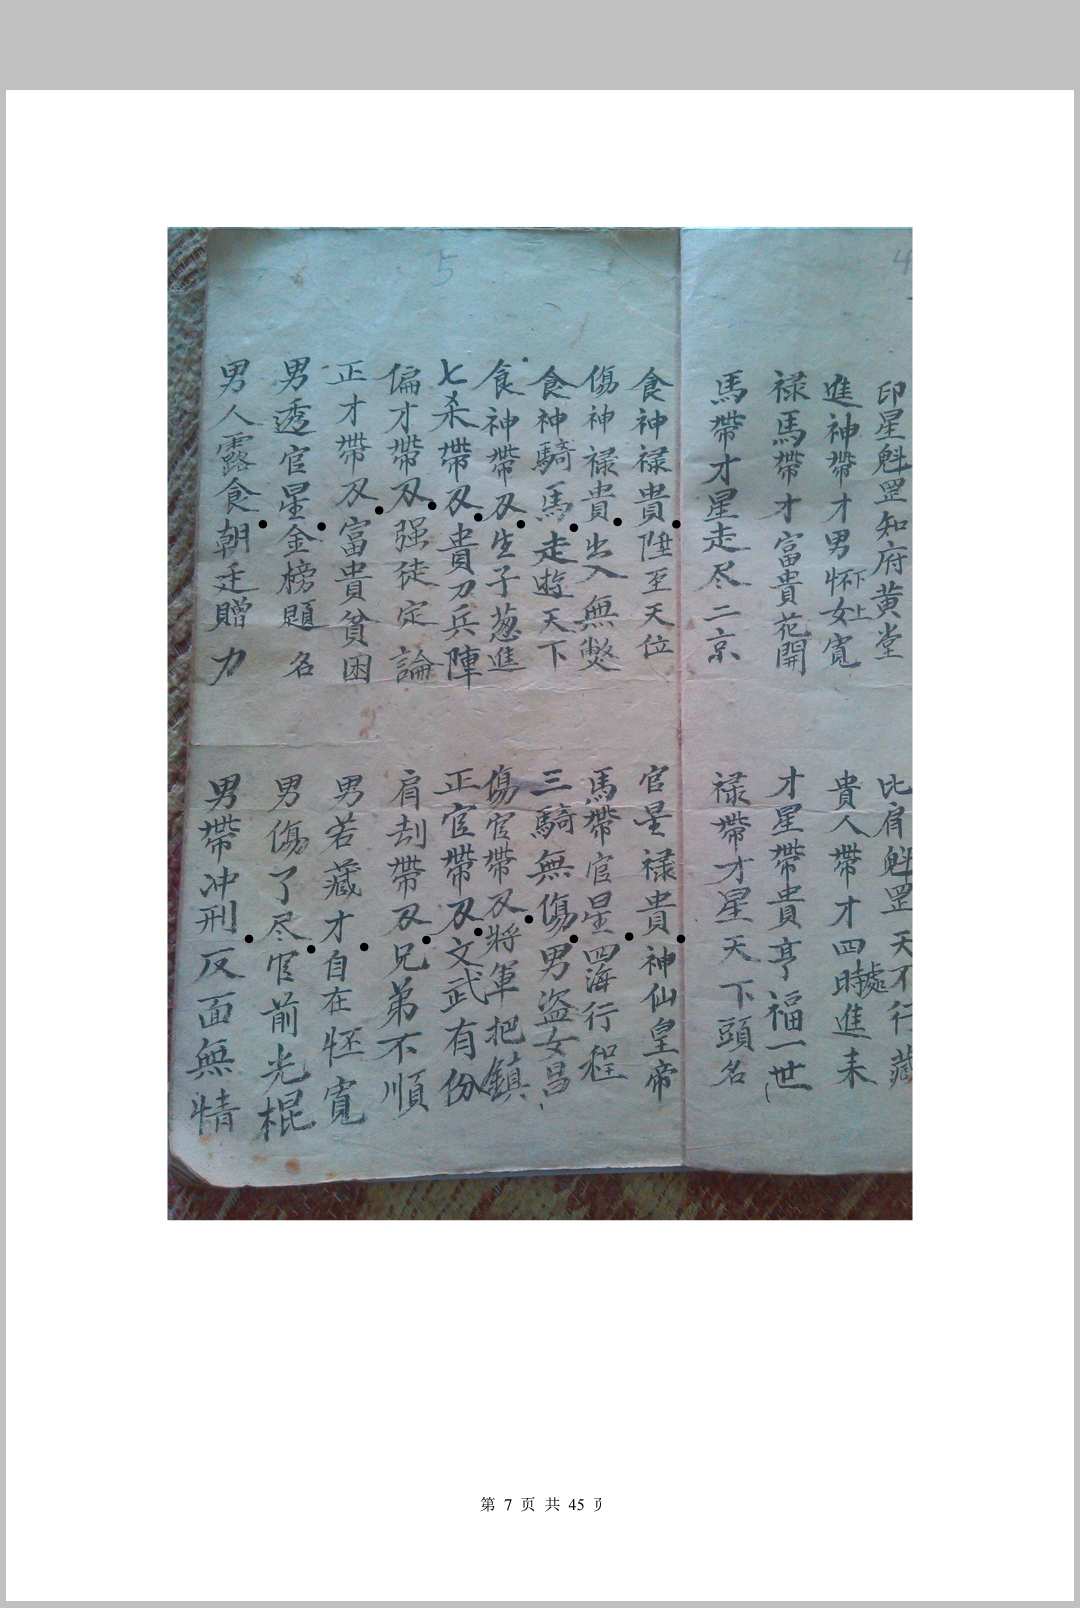 4
印星魁罡知府黄堂
比肩魁罡天不行藏
進神帶才男怀下女寬上
貴人帶才四時處進来
禄馬帶才富貴花開
才星帶貴亨福一世
馬帶才星走尽二京
禄帶才星天下頭名
5
食神禄貴陞至天位
官星禄貴神仙皇帝
傷神禄貴出入無獘
馬帶官星四海行程
食神騎馬走逰天下
三騎無傷男盗女昌
食神帶刄生子葱進
傷官帶刄將軍把鎮
七杀帶刄貴刀兵陣
正官帶刄文武有份
偏才帶刄强徒定論
肩刦帶刄兄弟不順
正才帶刄富貴貧困
男若藏才自在怀寬
男透官星金榜題名
男傷了尽官前光棍
男人露食朝廷贈力
男帶冲刑反面無情
第 7 页 共 45